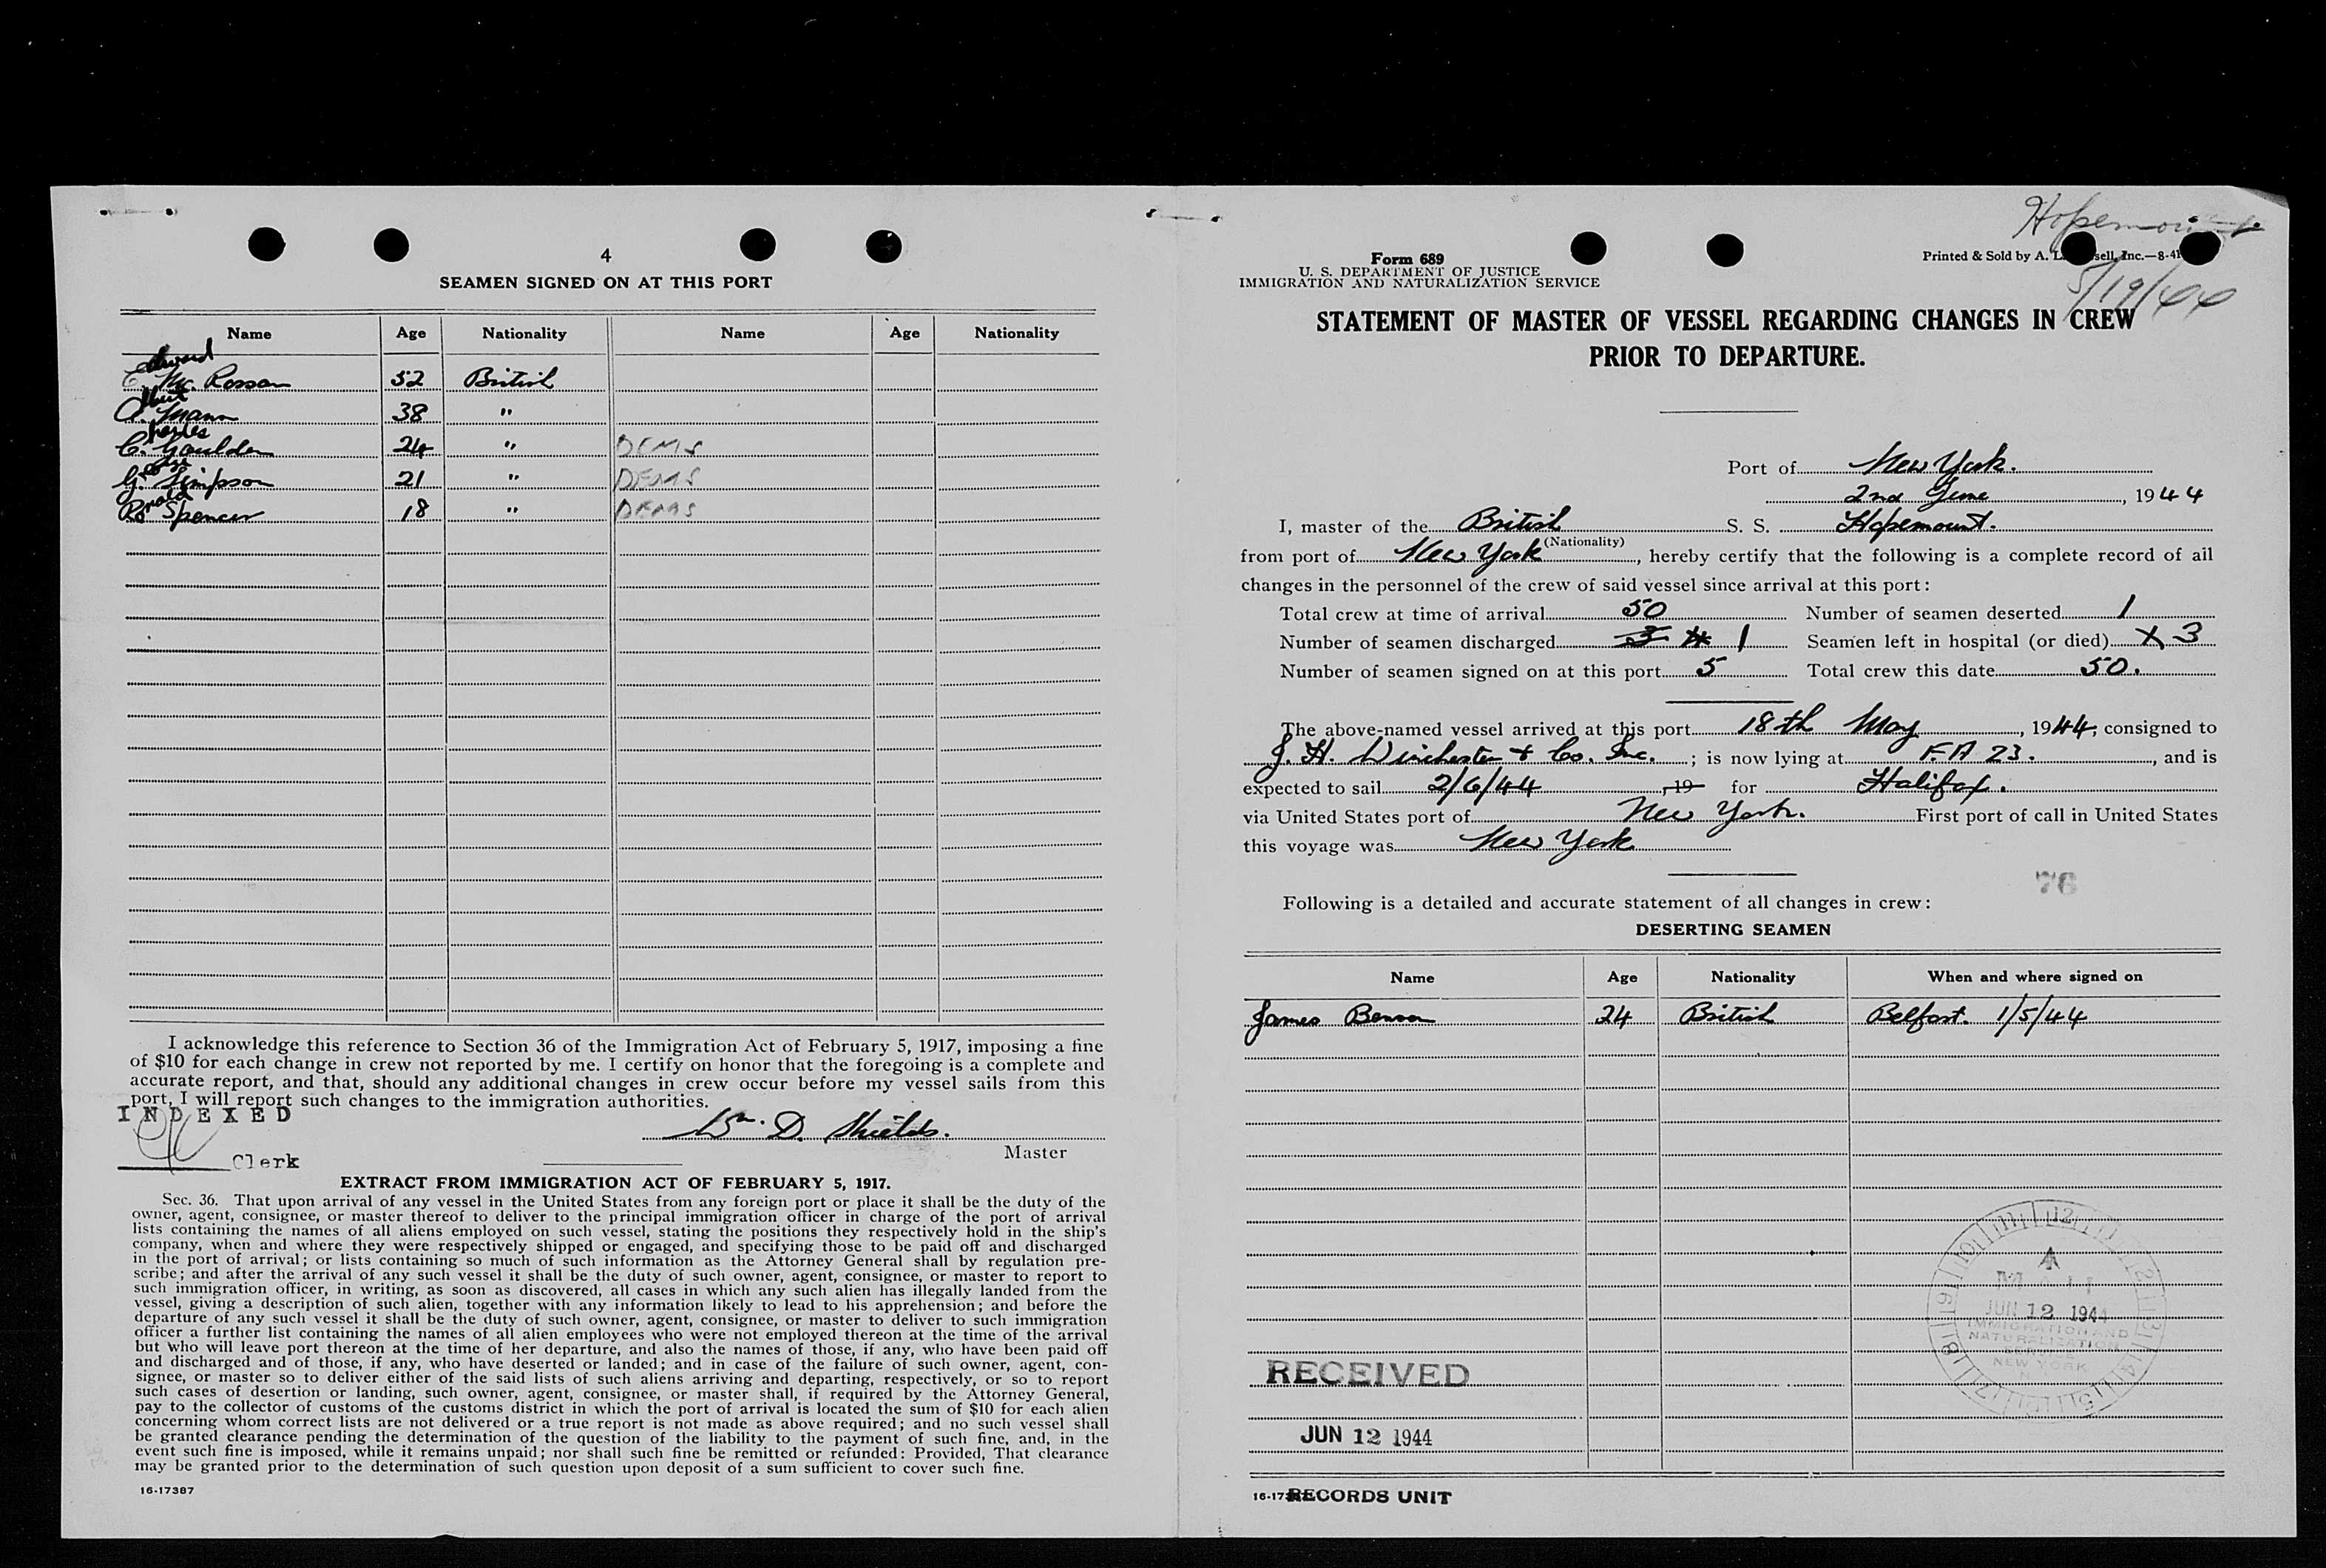 4
SEAMEN SIGNED ON AT THIS PORT
Name Age Nationality Name Age Nationality
Edward
E. Mc. Rossan 52 British
Albert
A. Mann 38 "
Charles
C. Goulden 24 " DEMS
George
G. Simpson 21 " DEMS
Ronald
R. Spencer 18 " DEMS
I acknowledge this reference to Section 36 of the Immigration Act of February 5, 1917, imposing a fine
of $10 for each change in crew not reported by me. I certify on honor that the foregoing is a complete and
accurate report, and that, should any additional changes in crew occur before my vessel sails from this
port, I will report such changes to the immigration authorities.
INDEXED
Wm. D. Shields.
Master
Clerk
EXTRACT FROM IMMIGRATION ACT OF FEBRUARY 5, 1917.
Sec. 36. That upon arrival of any vessel in the United States from any foreign port or place it shall be the duty of the
owner, agent, consignee, or master thereof to deliver to the principal immigration officer in charge of the port of arrival
lists containing the names of all aliens employed on such vessel, stating the positions they respectively hold in the ship's
company, when and where they were respectively shipped or engaged, and specifying those to be paid off and discharged
in the port of arrival; or lists containing so much of such information as the Attorney General shall by regulation pre-
scribe; and after the arrival of any such vessel it shall be the duty of such owner, agent, consignee, or master to report to
such immigration officer, in writing, as soon as discovered, all cases in which any such alien has illegally landed from the
vessel, giving a description of such alien, together with any information likely to lead to his apprehension; and before the
departure of any such vessel it shall be the duty of such owner, agent, consignee, or master to deliver to such immigration
officer a further list containing the names of all alien employees who were not employed thereon at the time of the arrival
but who will leave port thereon at the time of her departure, and also the names of those, if any, who have been paid off
and discharged and of those, if any, who have deserted or landed; and in case of the failure of such owner, agent, con-
signee, or master so to deliver either of the said lists of such aliens arriving and departing, respectively, or so to report
such cases of desertion or landing, such owner, agent, consignee, or master shall, if required by the Attorney General,
pay to the collector of customs of the customs district in which the port of arrival is located the sum of $10 for each alien
concerning whom correct lists are not delivered or a true report is not made as above required; and no such vessel shall
be granted clearance pending the determination of the question of the liability to the payment of such fine, and, in the
event such fine is imposed, while it remains unpaid; nor shall such fine be remitted or refunded: Provided, That clearance
may be granted prior to the determination of such question upon deposit of a sum sufficient to cover such fine.
16-17387
Hopemount
5/19/44
Form 689
U. S. DEPARTMENT OF JUSTICE
IMMIGRATION AND NATURALIZATION SERVICE
Printed & Sold by A. Inc.—8-41
STATEMENT OF MASTER OF VESSEL REGARDING CHANGES IN CREW
PRIOR TO DEPARTURE.
Port of New York.
2nd June, 1944
I, master of the British S. S. Hopemount.
(Nationality)
from port of New York, hereby certify that the following is a complete record of all
changes in the personnel of the crew of said vessel since arrival at this port:
Total crew at time of arrival 50 Number of seamen deserted 1
Number of seamen discharged 3 1 Seamen left in hospital (or died) X 3
Number of seamen signed on at this port 5 Total crew this date 50.
The above-named vessel arrived at this port 18th May, 1944, consigned to
J. H. Winchester & Co. Inc.; is now lying at F.A 23., and is
expected to sail 2/6/44, 19 for Halifax.
via United States port of New York. First port of call in United States
this voyage was New York
76
Following is a detailed and accurate statement of all changes in crew:
DESERTING SEAMEN
Name Age Nationality When and where signed on
James Benson 24 British Belfast. 1/5/44
JUN 12 1944
IMMIGRATION AND
NATURALIZATION
SERVICE
NEW YORK
RECEIVED
JUN 12 1944
RECORDS UNIT